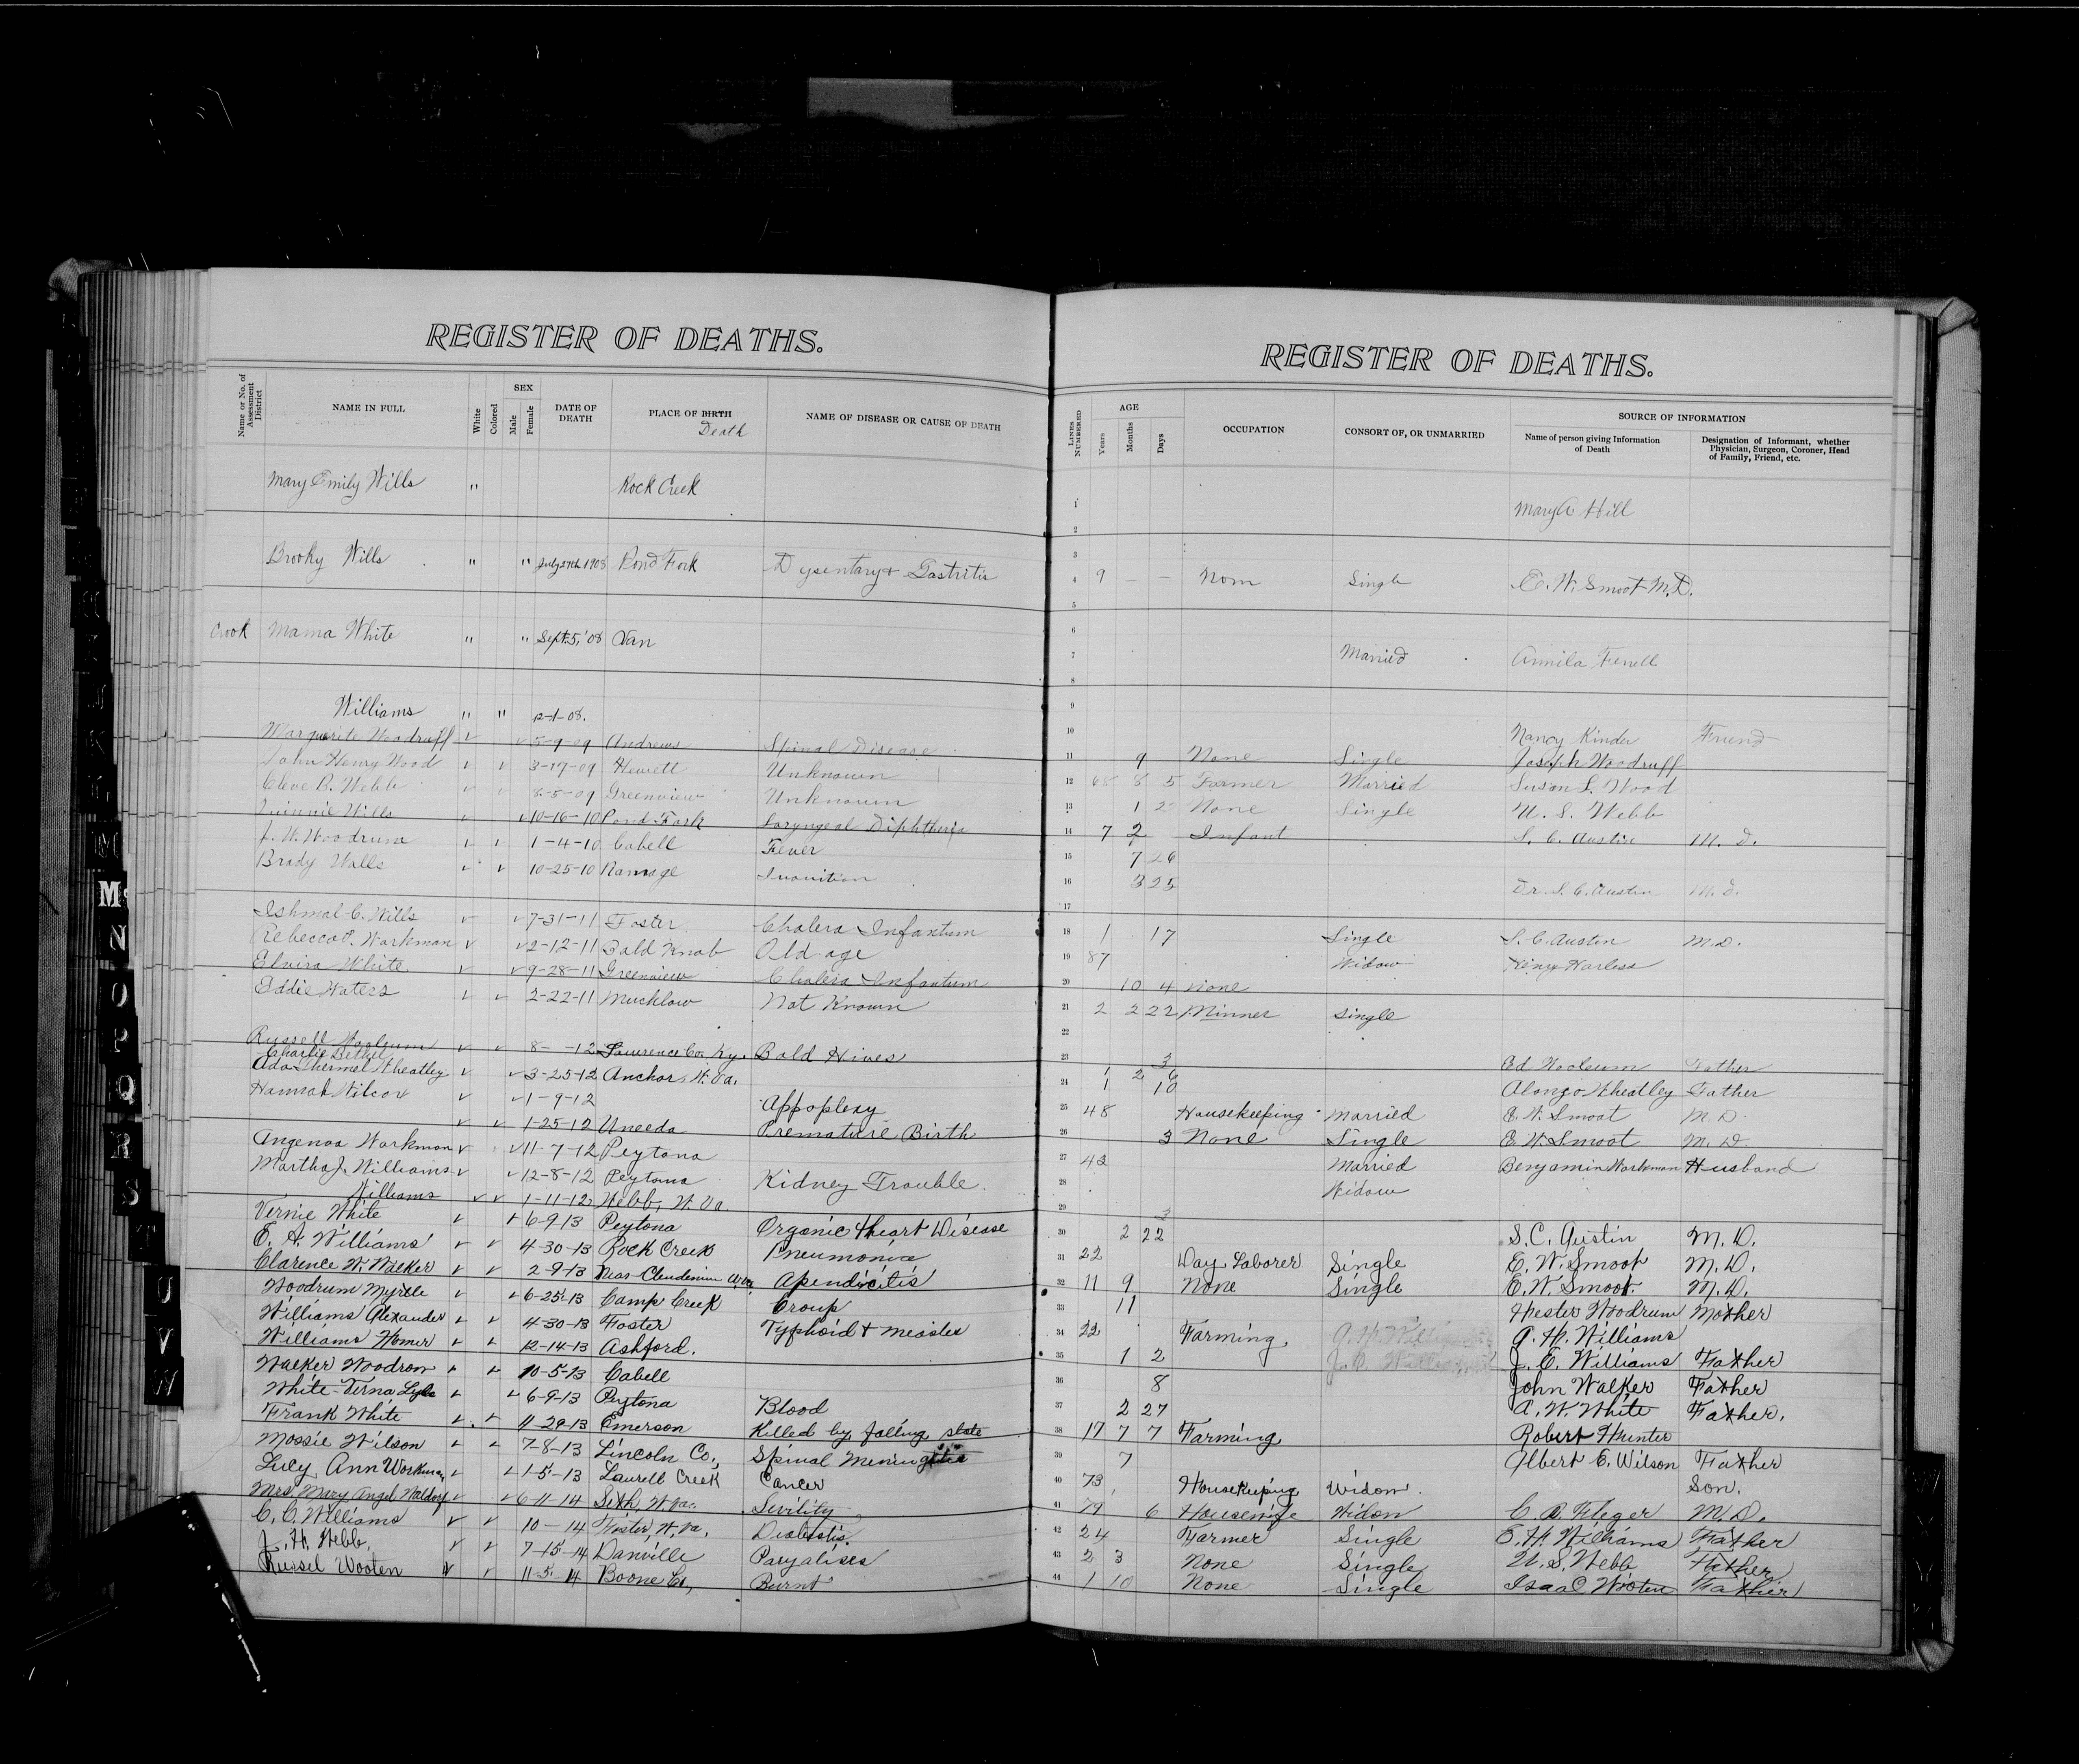 REGISTER OF DEATHS.
REGISTER OF DEATHS.
Name or No. of Assessment District
NAME IN FULL
White
Colored
SEX
Male
Female
DATE OF DEATH
PLACE OF BIRTH
Death
NAME OF DISEASE OR CAUSE OF DEATH
LINES NUMBERED
AGE
Years
Months
Days
OCCUPATION
CONSORT OF, OR UNMARRIED
SOURCE OF INFORMATION
Name of person giving Information of Death
Designation of Informant, whether Physician, Surgeon, Coroner, Head of Family, Friend, etc.
Mary Emily Wills " Rock Creek 1 Mary A Hill
2
3
Brooky Wills " " July 27th 1908 Pond Fork Dysentary & Gastritis 4 9 — — Non Single E. W. Smoot M.D.
5
6
Crook Mama White " " Sept. 5, '08 Van 7 Married Armila Ferrell
8
9
Williams " " 12-1-08. 10 Nancy Kinder Friend
Marguerite Woodruff ✓ ✓ 5-9-09 Andrews Spinal Disease 11 9 None Single Joseph Woodruff
John Henry Wood ✓ ✓ 3-19-09 Hewett Unknown 12 68 8 5 Farmer Married Susan L. Wood
Cleve B. Webb ✓ ✓ 8-5-09 Greenview Unknown 13 1 2 None Single U. S. Webb
Wills ✓ ✓ 10-16-10 Pond Fork Laryngeal Diphtheria 14 7 2 Infant S. C. Austin M. D.
J. W. Woodrum ✓ ✓ 1-4-10 Cabell Fever 15 7 26
Brady Walls ✓ ✓ 10-25-10 Ramage Inanition 16 3 25 Dr. S. C. Austin M. D.
17
Ishmal C. Wills ✓ ✓ 7-31-11 Foster Cholera Infantum 18 1 17 Single S. C. Austin M. D.
Rebecca Workman ✓ ✓ 2-12-11 Bald Knob Old age 19 87 Widow Harless
Elvira White ✓ ✓ 9-28-11 Greenview Cholera Infantum 20 10 4 None
Eddie Waters ✓ ✓ 2-22-11 Mucklow Not Known 21 2 2 22 Minner Single
22
Russell Wooleum ✓ ✓ 8- -12 Lawrence Co. Ky. Bold Hives 23 3 Ed Wooleum Father
Charlie Bethel 1 2 6
Ada Thermel Wheatley ✓ ✓ 3-25-12 Anchor, W. Va. 24 1 10 Alonzo Wheatley Father
Hannah Wilcox ✓ ✓ 1-9-12 Appoplexy 25 48 Housekeeping Married E. W. Smoot M D
✓ ✓ 1-25-12 Uneeda Premature Birth 26 3 None Single E. W. Smoot M. D.
Angenoa Workman ✓ ✓ 11-7-12 Peytona 27 43 Married Benjamin Workman Husband
Martha J. Williams ✓ ✓ 12-8-12 Peytona Kidney Trouble. 28 Widow
Williams ✓ ✓ 1-11-12 Webb, W. Va 29 3
Vernie White ✓ ✓ 6-9-13 Peytona Organic Heart Disease 30 2 22 S. C. Austin M. D.
E. H. Williams ✓ ✓ 4-30-13 Rock Creek Pneumonia 31 22 Day Laborer Single E. W. Smoot M. D.
Clarence W. Walker ✓ ✓ 2-9-13 Near Clendenin W.Va. Apendicitis 32 11 9 None Single E. W. Smoot. M. D.
Woodrum Myrtle ✓ ✓ 6-25-13 Camp Creek Croup 33 11 Hester Woodrum Mother
Williams Alexander ✓ ✓ 4-30-13 Foster Typhoid & measles 34 22 Farming A. H. Williams
Williams Homer ✓ ✓ 12-14-13 Ashford. 35 1 2 J. E. Williams Father
Walker Woodrow ✓ ✓ 10-5-13 Cabell 36 8 John Walker Father
White-Verna Lyle ✓ ✓ 6-9-13 Peytona Blood 37 2 27 A. W. White Father.
Frank White ✓ ✓ 11-29-13 Emerson Killed by falling slate 38 17 7 7 Farming Robert Hunter
Mossie Wilson ✓ ✓ 7-8-13 Lincoln Co., Spinal Meningitis 39 7 Albert E. Wilson Father
Lucy Ann Workman ✓ ✓ 1-5-13 Laurell Creek Cancer 40 73 Housekeeping Widow. Son.
Mrs. Mary Angel Waldorf ✓ ✓ 6-11-14 Seth W. Va. Sevility 41 79 6 Housewife Widow C. A. Fleger M. D.
C. C. Williams ✓ ✓ 10- 14 W. Va. Diabetis. 42 24 Farmer Single E. H. Williams Father
J. H. Webb, ✓ ✓ 7-15-14 Danville Paryalises 43 2 3 None Single U. S. Webb Father
Russel Wooten ✓ ✓ 11-5-14 Boone Co, Burnt 44 1 10 None Single Isaac Wooten Father
M
Mc
N
O
P
Q
R
S
T
U
V
W